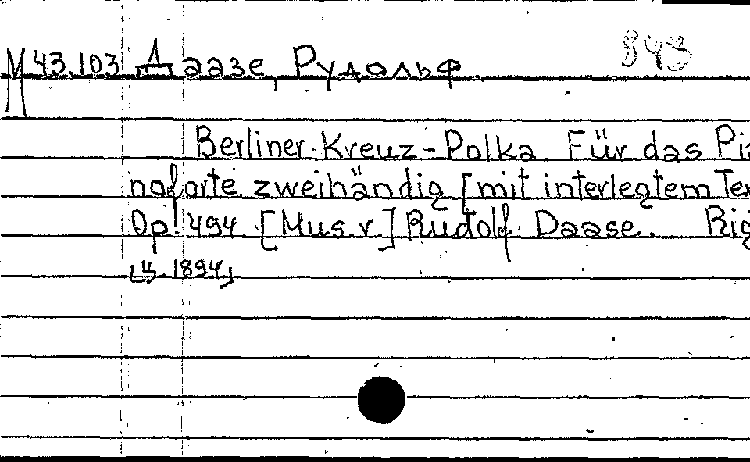 M 43.103 Даазе, Рудольф 843
Berliner-Kreuz-Polka Für das Pia
noforte zweihändig [mit interlegtem Tex
Op. 494 [Mus. v.] Rudolf Daase. Rig
[ч. 1894]